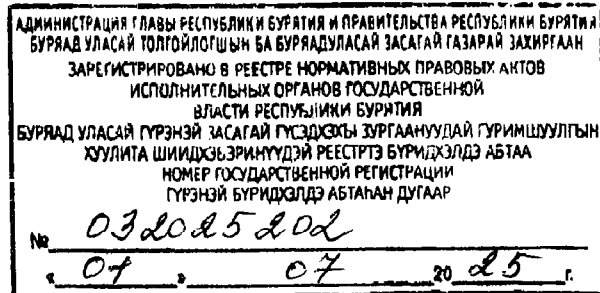 АДМИНИСТРАЦИЯ ГЛАВЫ РЕСПУБЛИКИ БУРЯТИЯ И ПРАВИТЕЛЬСТВА РЕСПУБЛИКИ БУРЯТИЯ
БУРЯАД УЛАСАЙ ТОЛГОЙЛОГШЫН БА БУРЯАД УЛАСАЙ ЗАСАГАЙ ГАЗАРАЙ ЗАХИРГААН
ЗАРЕГИСТРИРОВАНО В РЕЕСТРЕ НОРМАТИВНЫХ ПРАВОВЫХ АКТОВ
ИСПОЛНИТЕЛЬНЫХ ОРГАНОВ ГОСУДАРСТВЕННОЙ
ВЛАСТИ РЕСПУБЛИКИ БУРЯТИЯ
БУРЯАД УЛАСАЙ ГҮРЭНЭЙ ЗАСАГАЙ ГҮЙСЭДХЭХЫ ЗУРГААНУУДАЙ ГУРИМШУУЛГЫН
ХУУЛИТА ШИИДХЭБЭРИНҮҮДЭЙ РЕЕСТРТЭ БҮРИДХЭЛДЭ АБТАА
НОМЕР ГОСУДАРСТВЕННОЙ РЕГИСТРАЦИИ
ГҮРЭНЭЙ БҮРИДХЭЛДЭ АБТАҺАН ДУГААР
№ 032025202
« 01 » 07 20 25 г.